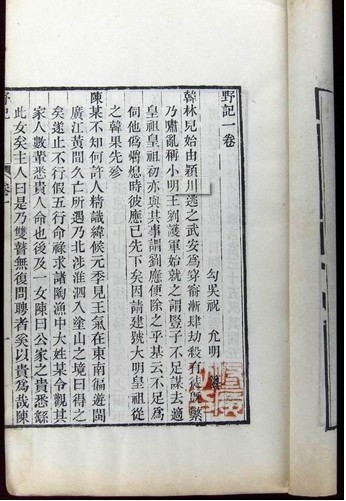 野記一卷
勾吳祝 允明
韓林兒始由潁川逃之武安爲穿窬漸肆劫殺有徒既繁
乃嘯亂稱小明王劉護軍始就之謂豎子不足謀去適
皇祖皇祖初亦與共事謂劉應便除之乎基云不足爲
伺他爲將熄時彼應已先下矣因請建號大明皇祖從
之韓果先殄
陳某不知何許人精識緯候元季見王氣在東南徧遊閩
廣江黃間久亡所遇乃北涉淮泗入塗山之境曰得之
矣遂止不行假五行命祿求諸陶漁中大姓某令觀其
家人數輩悉貴人命也後及一女陳曰公家之貴悉餘
此女矣主人曰是乃雙瞽無復問聘者矣以貴爲哉陳
野記
卷一